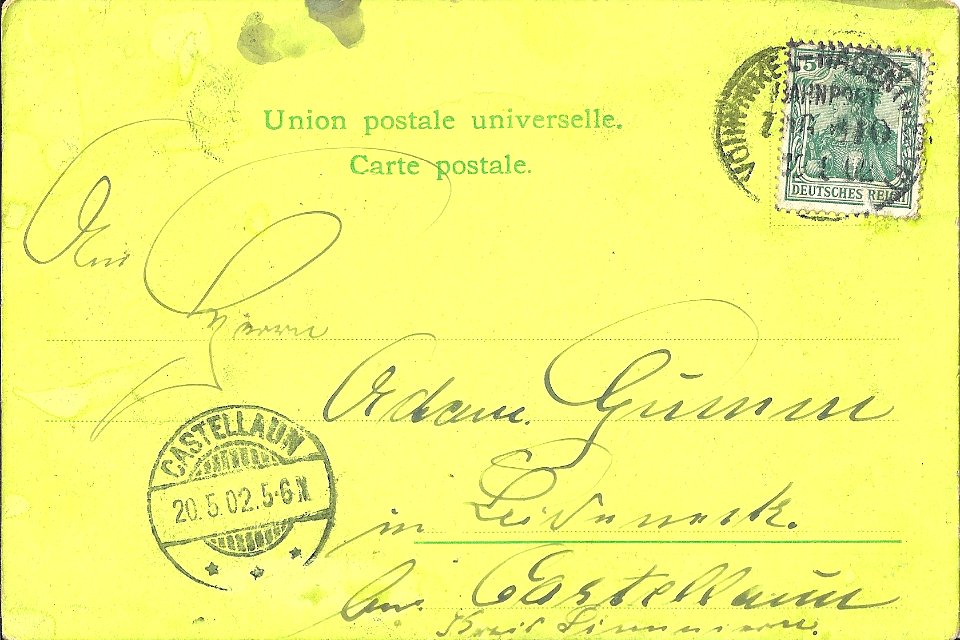 Union postale universelle.
Carte postale.
VOHWINKEL-HAGEN
BAHNPOST
5
DEUTSCHES REICH
An
Herrn
Adam Gumm
in Leideneck.
bei Castellaun
Kreis Simmern.
CASTELLAUN
20.5.02.5-6N